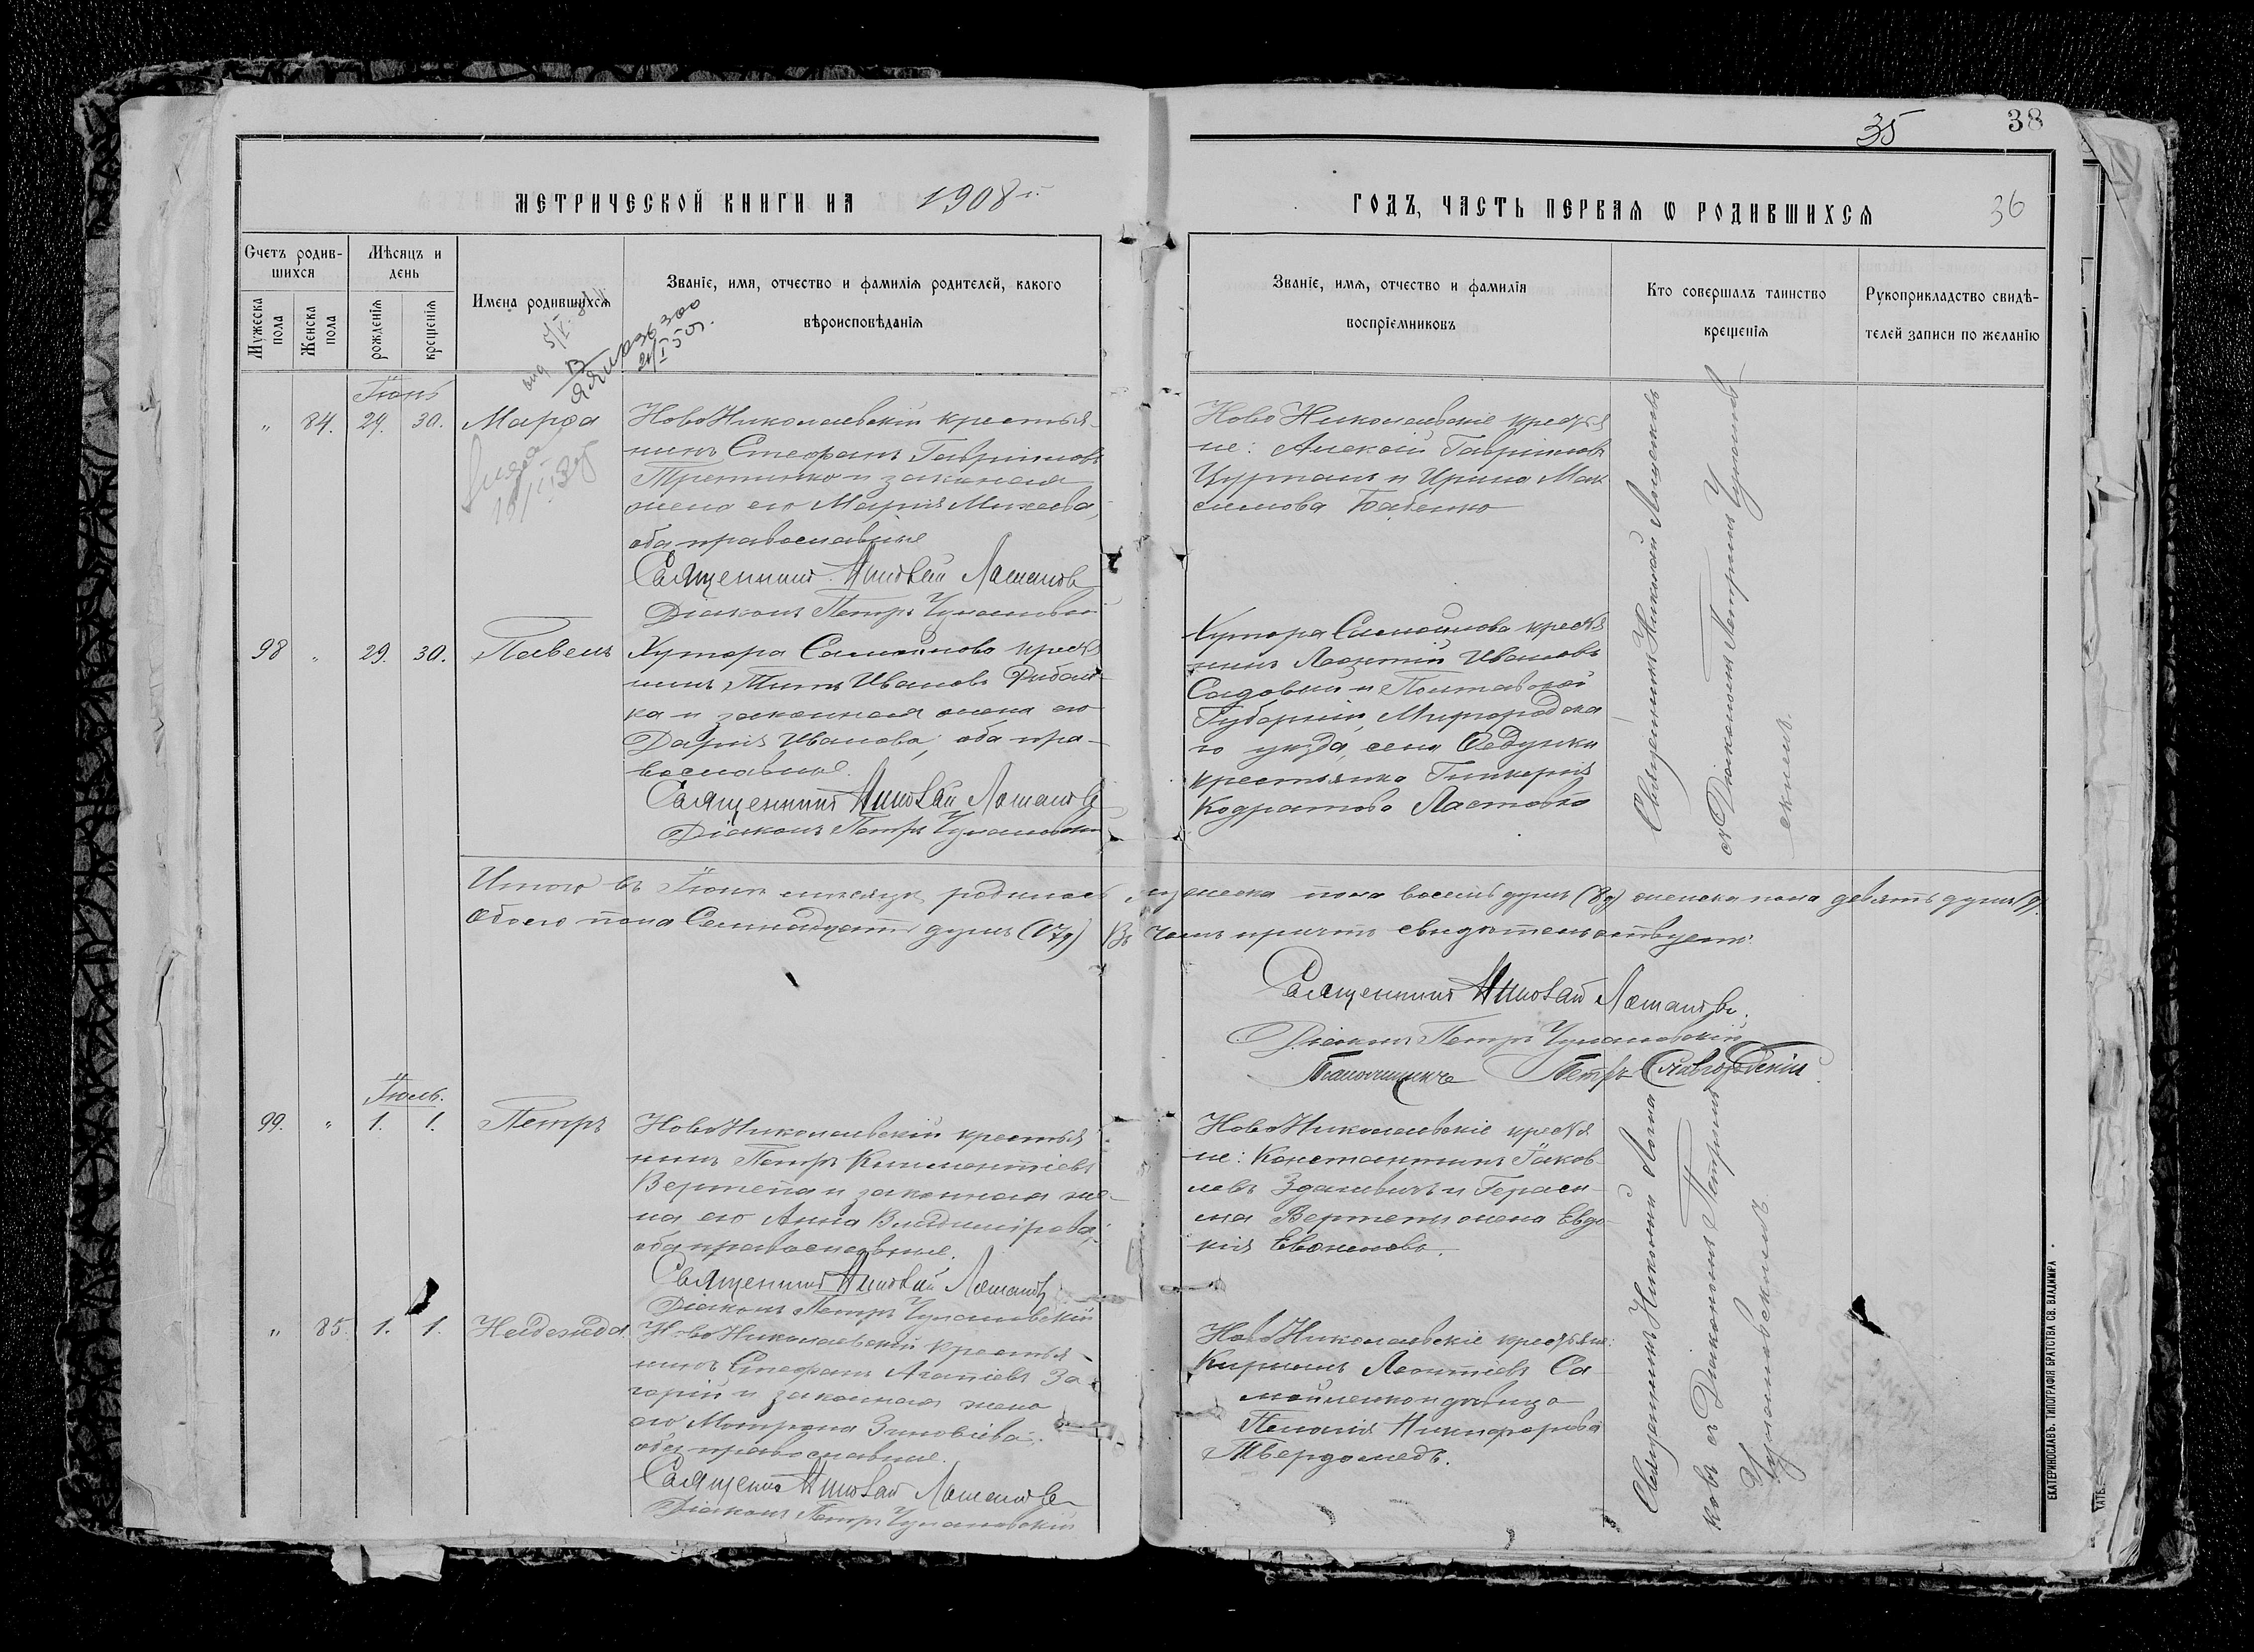 35
38
36
МЕТРИЧЕСКОЙ КНИГИ НА 1908й
ГОДЪ, ЧАСТЬ ПЕРВАЯ Ѡ РОДИВШИХСЯ
Счетъ родив-
шихся
Мужеска пола
Женска пола
Мѣсяцъ и
день
рожденія
крещенія
Имена родившихся
Званіе, имя, отчество и фамилія родителей, какого
вѣроисповѣданія
Званіе, имя, отчество и фамилія
воспріемниковъ
Кто совершалъ таинство
крещенія
Рукоприкладство свидѣ-
телей записи по желанію
Іюнь
" 84. 29. 30. Марѳа
НовоНиколаевскій крестья-
нинъ Стефанъ Гавріиловъ
и законная
жена его Марія Михеева,
оба православные
Священникъ Николай Ломаковъ
Діаконъ Петръ Чумановскій
Ново Николаевскіе крестья
не: Алексій Гавріиловъ
и Ирина Мак
симова Бабенко
98 " 29. 30. Павелъ
Хутора Самойлова кресть
нинъ Титъ Ивановъ Рибал-
ка и законная жена его
Дарія Иванова, оба пра-
вославные.
Священникъ Николай Ломаковъ
Діаконъ Петръ Чумановскій
Хутора Самойлова кресть
нинъ Леонтій Ивановъ
Садовый и Полтавской
Губерніи, Миргородска
го уѣзда, села Ѳедунки
крестьянка Гликерія
Кодратова
Священникъ Николай Ломаковъ
съ Діакономъ Петромъ Чуманов
скимъ.
Итого въ Іюнѣ мѣсяцѣ родилось мужеска пола восемь душъ (8д) женска пола девять душъ (9).
Обоего пола Семнадцать душъ (17д) Въ чемъ причтъ свидѣтельствуетъ:
Священникъ Николай Ломаковъ.
Діаконъ Петръ Чумановскій
Псаломщикъ Петръ Славгородскій
Іюль.
99. " 1. 1. Петръ
НовоНиколаевскій крестья
нинъ Петръ Климентіевъ
Вертепа и законная же-
на его Анна Владимірова,
оба православные.
Священникъ Николай Ломаковъ
Діаконъ Петръ Чумановскій
НовоНиколаевскіе крестья
не: Константинъ Іаков-
левъ Зданевичъ и Гераси-
ма Вертепы жена Евдо-
кія
" 85. 1. 1. Надежда
НовоНиколаевскій крестья-
нинъ Стефанъ Агапіевъ За-
горій и законная жена
его Матрона Зиновіева,
оба православные.
Священникъ Николай Ломаковъ
Діаконъ Петръ Чумановскій
НовоНиколаевскіе крестьяне:
Кириллъ Леонтіевъ Са
мойленко и дѣвица
Пелагія Никифорова
Твердомедъ.
Священникъ Николай Лома
ковъ съ Діакономъ Петромъ
Чумановскимъ.
ЕКАТЕРИНОСЛАВЪ. ТИПОГРАФІЯ БРАТСТВА СВ. ВЛАДИМІРА.